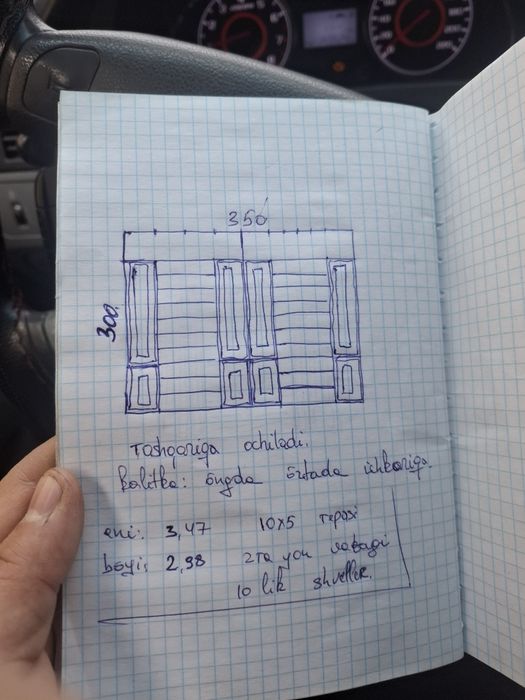 350
300
Tashqariga ochiladi.
Kalitka: óngda órtada ichkariga.
eni: 3,47 10x5 tepasi
bóyi: 2,98 2ta yon
10 lik shveller.